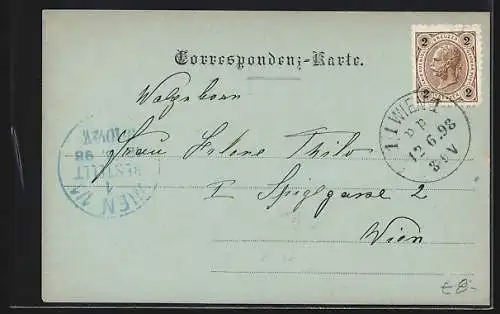 Correspondenz-Karte.
2 2
1/1 WIEN 1
12.6.98
8-9V
Wohlgeborn
Frau Helene Thilo
I Spiegelgasse 2
Wien
WIEN 1/1
BESTELLT
98
€8.-